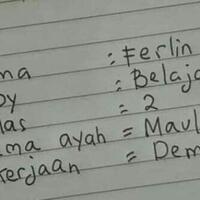 ma : Ferlin
by : Belaja
las = 2
ma ayah = Maul
kerjaan = Dem